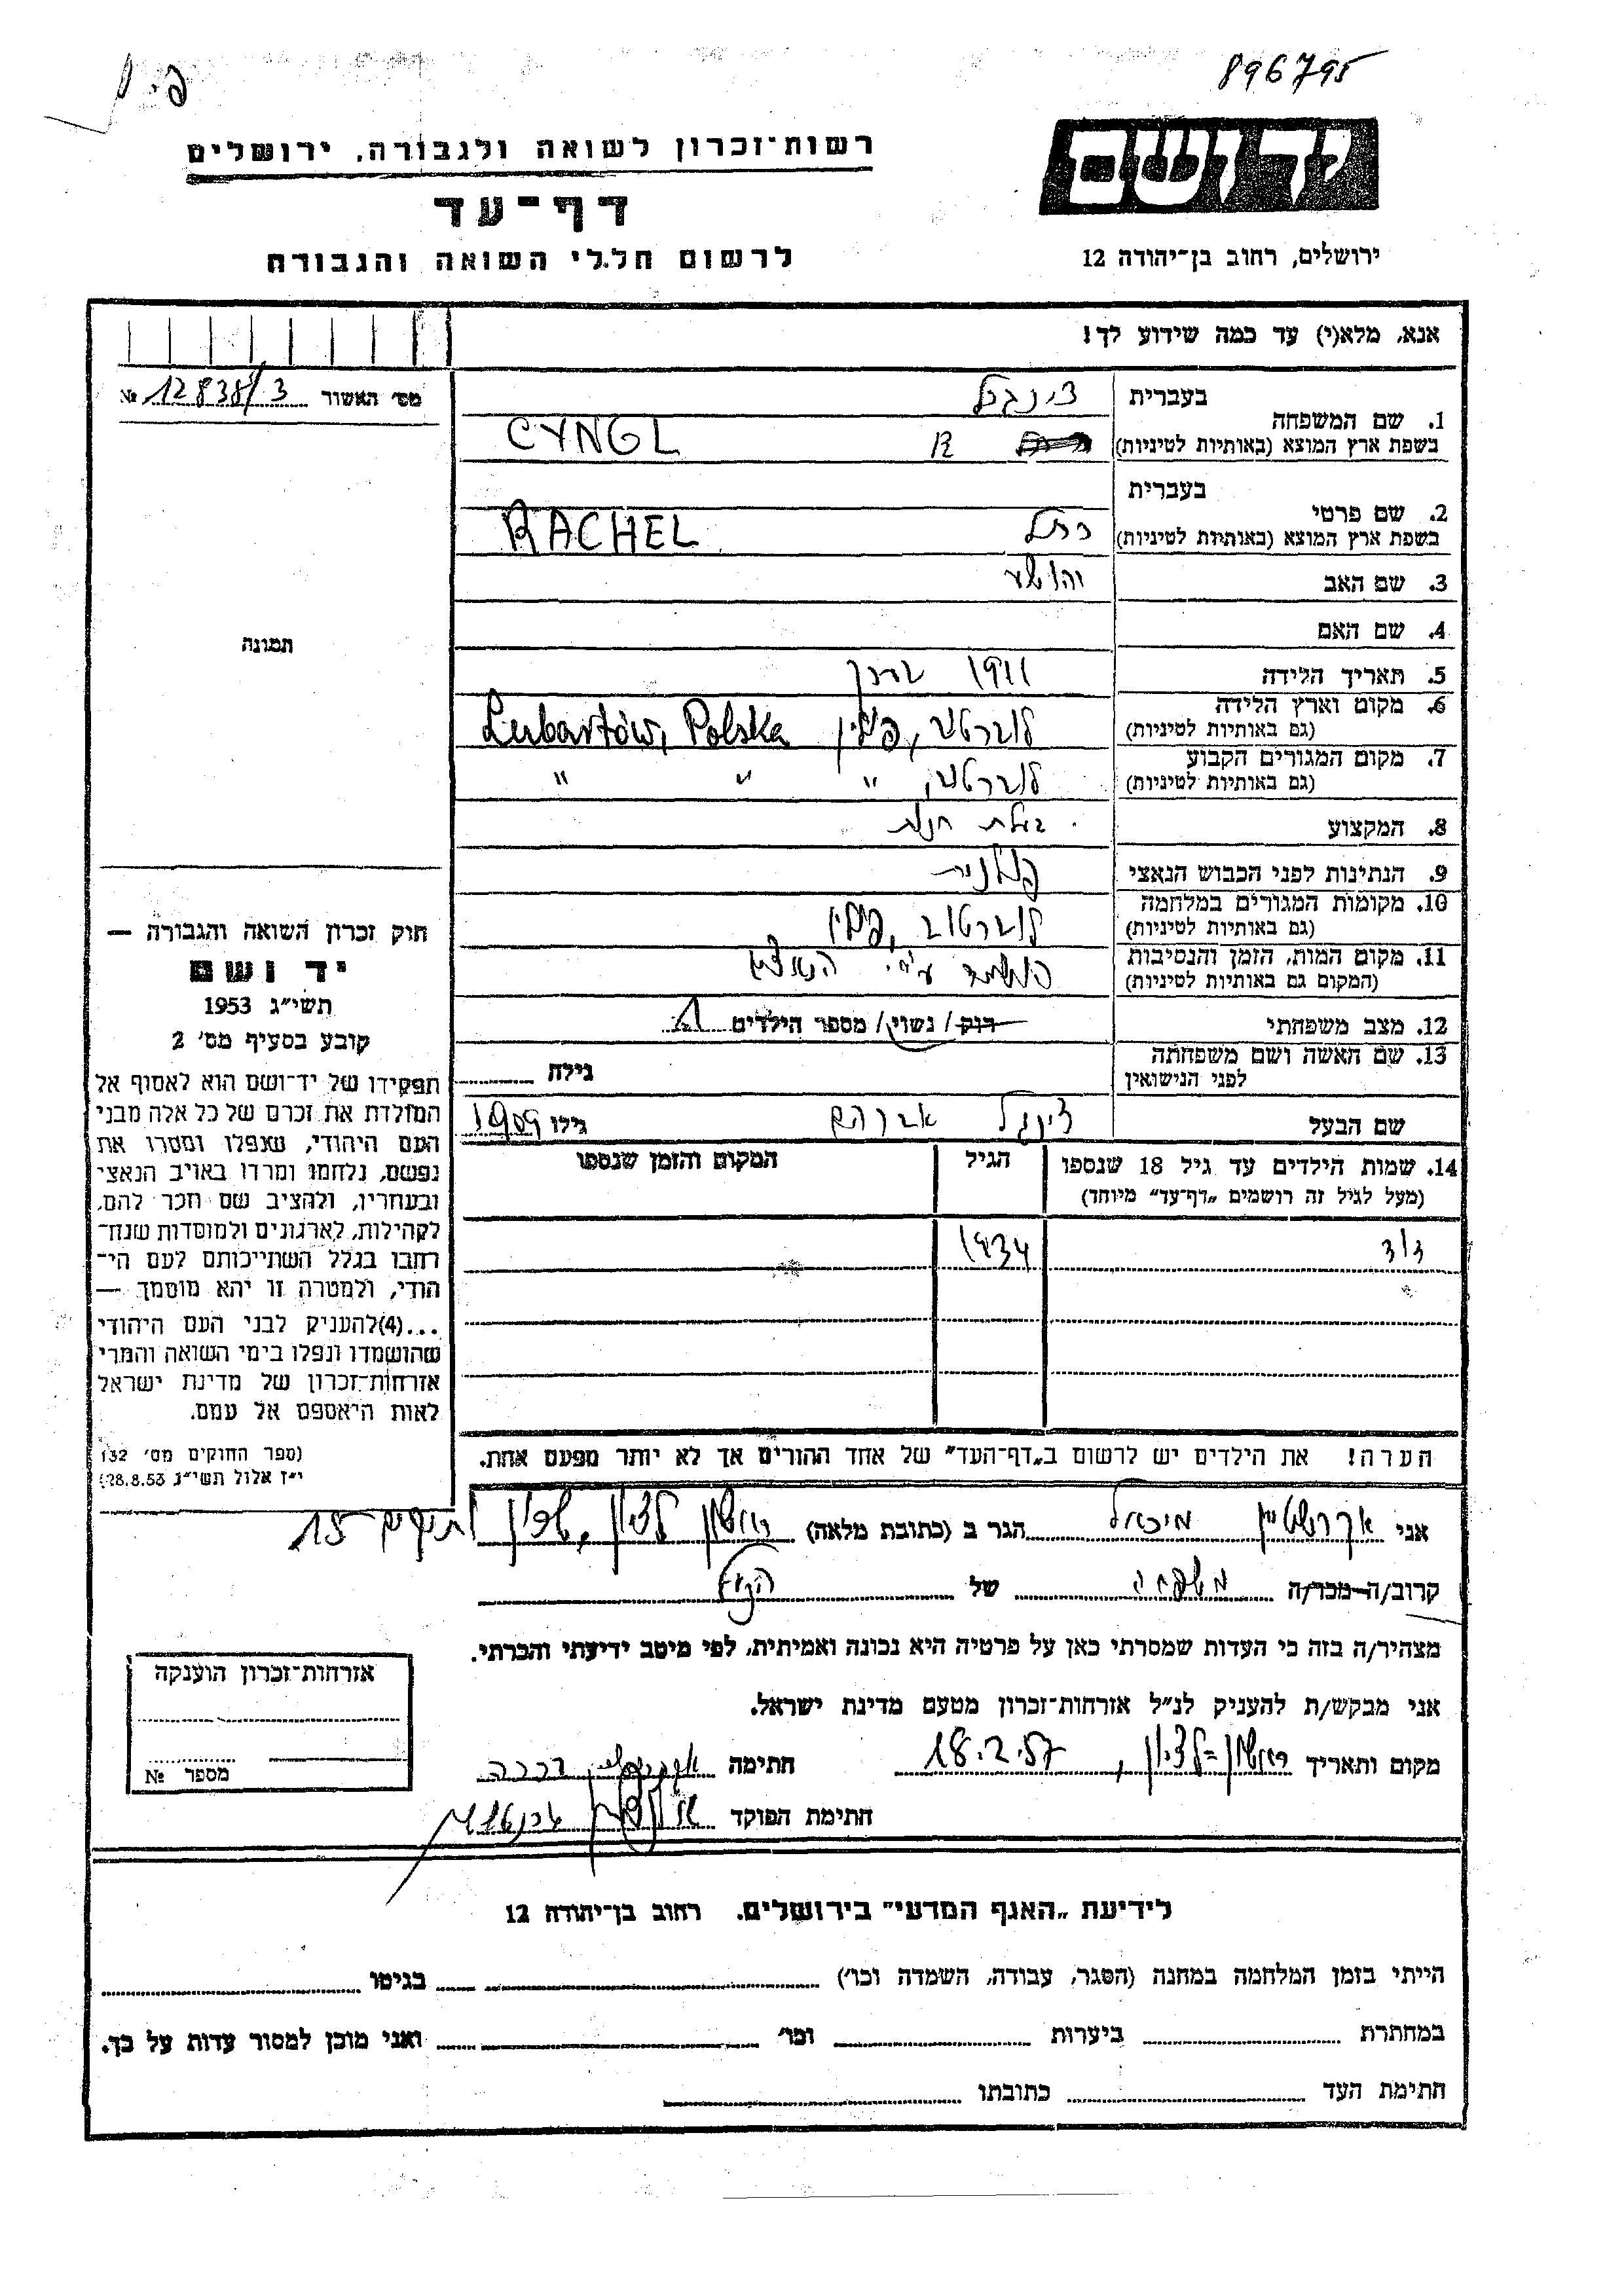 896795
יד ושם
ירושלים, רחוב בן־יהודה 12
רשות־זכרון לשואה ולגבורה, ירושלים
דף־עד
לרשום חללי השואה והגבורה
אנא, מלא(י) עד כמה שידוע לך!
מס׳ האשור 12838/3 №
תמונה
חוק זכרון השואה והגבורה —
יד ושם
תשי״ג 1953
קובע בסעיף מס׳ 2
תפקידו של יד־ושם הוא לאסוף אל
המולדת את זכרם של כל אלה מבני
העם היהודי, שנפלו ומסרו את
נפשם, נלחמו ומרדו באויב הנאצי
ובעוזריו, ולהציב שם וזכר להם,
לקהילות, לארגונים ולמוסדות שנח־
רבו בגלל השתייכותם לעם הי־
הודי, ולמטרה זו יהא מוסמך —
...(4)להעניק לבני העם היהודי
שהושמדו ונפלו בימי השואה והמרי
אזרחות־זכרון של מדינת ישראל
לאות היאספם אל עמם.
(ספר החוקים מס׳ 132
י״ז אלול תשי״ג 28.8.53)
1. שם המשפחה בעברית צינגל
בשפת ארץ המוצא (באותיות לטיניות) CYNGL
2. שם פרטי בעברית
בשפת ארץ המוצא (באותיות לטיניות) רחל RACHEL
3. שם האב יהושע
4. שם האם
5. תאריך הלידה 1911
6. מקום וארץ הלידה (גם באותיות לטיניות) לוברטוב, פולין Lubartów, Polska
7. מקום המגורים הקבוע (גם באותיות לטיניות) לוברטוב, " " "
8. המקצוע בעלת חנות
9. הנתינות לפני הכבוש הנאצי פולנית
10. מקומות המגורים במלחמה (גם באותיות לטיניות) לוברטוב, פולין
11. מקום המות, הזמן והנסיבות (המקום גם באותיות לטיניות) הושמדה ע״י הנאצים
12. מצב משפחתי רוק / נשוי / מספר הילדים 1
13. שם האשה ושם משפחתה לפני הנישואין גילה
שם הבעל צינגל אברהם גילו 1909
14. שמות הילדים עד גיל 18 שנספו הגיל המקום והזמן שנספו
(מעל לגיל זה רושמים „דף־עד״ מיוחד)
דוד 1934
הערה! את הילדים יש לרשום ב„דף־העד״ של אחד ההורים אך לא יותר מפעם אחת.
אני אקרשטיין מיכאל הגר ב (כתובת מלאה) ראשון לציון, שכון ותיקים 15
קרוב/ה מכר/ה משפחה של הנ״ל
מצהיר/ה בזה כי העדות שמסרתי כאן על פרטיה היא נכונה ואמיתית, לפי מיטב ידיעתי והכרתי.
אני מבקש/ת להעניק לנ״ל אזרחות־זכרון מטעם מדינת ישראל.
מקום ותאריך ראשון־לציון, 18.2.57 חתימה
חתימת הפוקד
אזרחות־זכרון הוענקה
מספר №
לידיעת „האגף המדעי״ בירושלים. רחוב בן־יהודה 12
הייתי בזמן המלחמה במחנה (הסגר, עבודה, השמדה וכו׳) בגיטו
במחתרת ביערות וכו׳ ואני מוכן למסור עדות על כך.
חתימת העד כתובתו